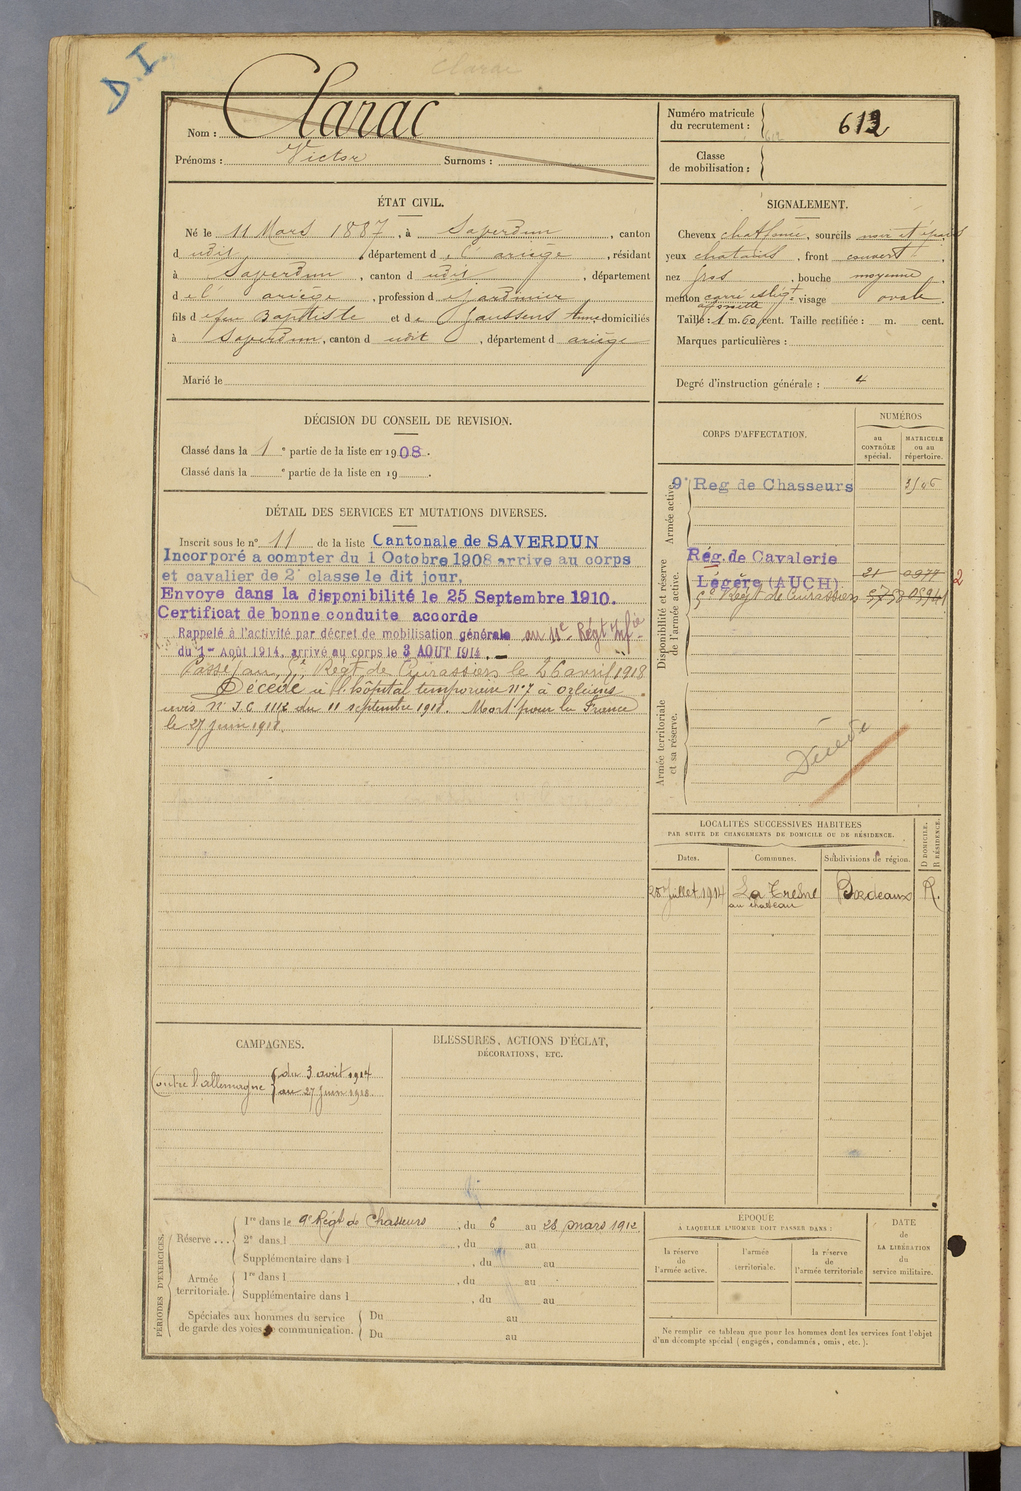 D.I.
Clarac
Nom : Clarac
Prénoms : Victor Surnoms :
Numéro matricule
du recrutement : 612
Classe
de mobilisation :
ÉTAT CIVIL.
Né le 11 Mars 1887, à Saverdun, canton
dudit, département de l'ariège, résidant
à Saverdun, canton dudit, département
de l'ariège, profession de Jardinier
fils de feu Baptiste et de Jaussens Anne domiciliés
à Saverdun, canton dudit, département d ariège
Marié le
SIGNALEMENT.
Cheveux , sourcils noir et épais
yeux chatains, front couvert,
nez gros, bouche moyenne,
menton carré visage ovale.
Taille : 1 m. 60 cent. Taille rectifiée : m. cent.
Marques particulières :
Degré d'instruction générale : 4
DÉCISION DU CONSEIL DE REVISION.
Classé dans la 1e partie de la liste en 1908.
Classé dans la e partie de la liste en 19 .
DÉTAIL DES SERVICES ET MUTATIONS DIVERSES.
Inscrit sous le n° 11 de la liste Cantonale de SAVERDUN
Incorporé a compter du 1 Octobre 1908 arrive au corps
et cavalier de 2e classe le dit jour,
Envoye dans la disponibilité le 25 Septembre 1910.
Certificat de bonne conduite accorde
Rappelé à l'activité par décret de mobilisation générale au 11e Régt Infie
du 1er Août 1914, arrivé au corps le 3 AOUT 1914.
Passé au 5e Régt de Cuirassiers le 26 avril 1918
Décédé à l'hôpital temporaire N°7 à Orléans
avis N° J.C 1112 du 11 septembre 1918. Mort pour la France
le 27 juin 1918.
CORPS D'AFFECTATION.
NUMÉROS
au
CONTRÔLE
spécial.
MATRICULE
ou au
répertoire.
Armée active.
9e Reg de Chasseurs
Disponibilité et réserve
de l'armée active.
Rég. de Cavalerie
Légère (AUCH). 21 0977
5e Régt de Cuirassiers
2
Armée territoriale
et sa réserve.
Décédé
LOCALITÉS SUCCESSIVES HABITÉES
PAR SUITE DE CHANGEMENTS DE DOMICILE OU DE RÉSIDENCE.
D DOMICILE.
R RÉSIDENCE.
Dates. Communes. Subdivisions de région.
28 Juillet 1914 La Tresne Bordeaux R.
au chateau
CAMPAGNES.
Contre l'allemagne du 3 août 1914
au 27 Juin 1918.
BLESSURES, ACTIONS D'ÉCLAT,
DÉCORATIONS, ETC.
PÉRIODES D'EXERCICES.
Réserve ...
1re dans le 9e Régt de Chasseurs, du 6 au 28 mars 1912
2e dans l , du au
Supplémentaire dans l , du au
Armée
territoriale.
1re dans l , du au
Supplémentaire dans l , du au
Spéciales aux hommes du service
de garde des voies de communication.
Du au
Du au
ÉPOQUE
A LAQUELLE L'HOMME DOIT PASSER DANS :
la réserve
de
l'armée active.
l'armée
territoriale.
la réserve
de
l'armée territoriale
DATE
de
LA LIBÉRATION
du
service militaire.
Ne remplir ce tableau que pour les hommes dont les services font l'objet
d'un décompte spécial (engagés, condamnés, omis, etc.).